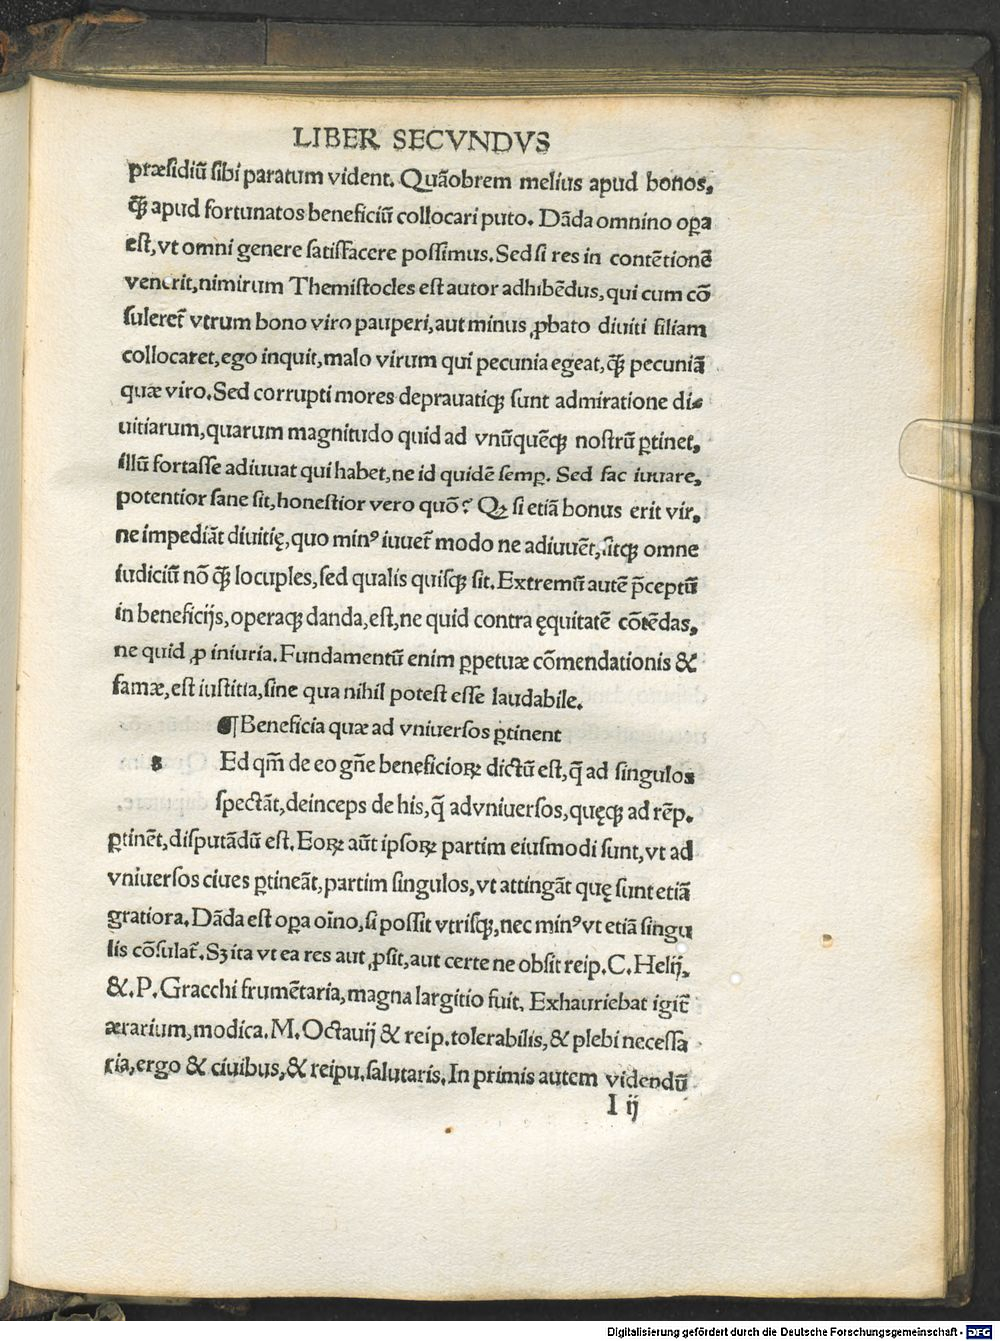 LIBER SECVNDVS
præsidiũ sibi paratum vident. Quãobrem melius apud bonos,
q̃ꝫ apud fortunatos beneficiũ collocari puto. Dãda omnino oꝑa
est, vt omni genere satisfacere possimus. Sed si res in contẽtionẽ
venerit, nimirum Themistocles est autor adhibẽdus, qui cum cõ
suleret᷑ vtrum bono viro pauperi, aut minus ꝓbato diuiti filiam
collocaret, ego inquit, malo virum qui pecunia egeat, q̃ꝫ pecuniã
quæ viro. Sed corrupti mores deprauatiqꝫ sunt admiratione di⸗
uitiarum, quarum magnitudo quid ad vnũquẽqꝫ nostrũ ꝑtinet,
illũ fortasse adiuuat qui habet, ne id quidẽ semꝑ. Sed fac iuuare,
potentior sane sit, honestior vero quõ? Qꝫ si etiã bonus erit vir,
ne impediãt diuitię, quo minꝰ iuuet᷑ modo ne adiuuẽt, sitqꝫ omne
iudiciũ nõ q̃ꝫ locuples, sed qualis quisqꝫ sit. Extremũ autẽ p̃ceptũ
in beneficijs, operaqꝫ danda, est, ne quid contra ęquitatẽ cõtẽdas,
ne quid ꝓ iniuria. Fundamentũ enim ꝑpetuæ cõmendationis &
famæ, est iustitia, sine qua nihil potest esse laudabile.
¶ Beneficia quæ ad vniuersos ꝑtinent
s Ed qm̃ de eo gñe beneficioꝝ dictũ est, q̃ ad singulos
spectãt, deinceps de his, q̃ ad vniuersos, quęqꝫ ad rẽp.
ꝑtinẽt, disputãdũ est. Eoꝝ aũt ipsoꝝ partim eiusmodi sunt, vt ad
vniuersos ciues ꝑtineãt, partim singulos, vt attingãt quę sunt etiã
gratiora. Dãda est oꝑa oĩno, si possit vtrisqꝫ, nec minꝰ vt etiã singu
lis cõsulat᷑. Sꝫ ita vt ea res aut ꝓsit, aut certe ne obsit reip. C. Helij,
&. P. Gracchi frumẽtaria, magna largitio fuit. Exhauriebat igit᷑
ærarium, modica. M. Octauij & reip. tolerabilis, & plebi necessa
ria, ergo & ciuibus, & reipu. salutaris. In primis autem videndũ
I ij
Digitalisierung gefördert durch die Deutsche Forschungsgemeinschaft - DFG